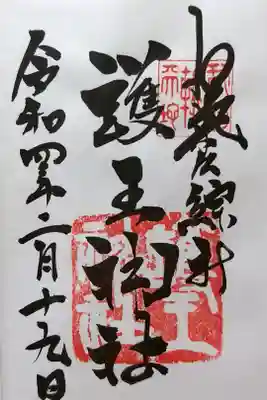 護王神社
令和四年二月十九日
護王
神社